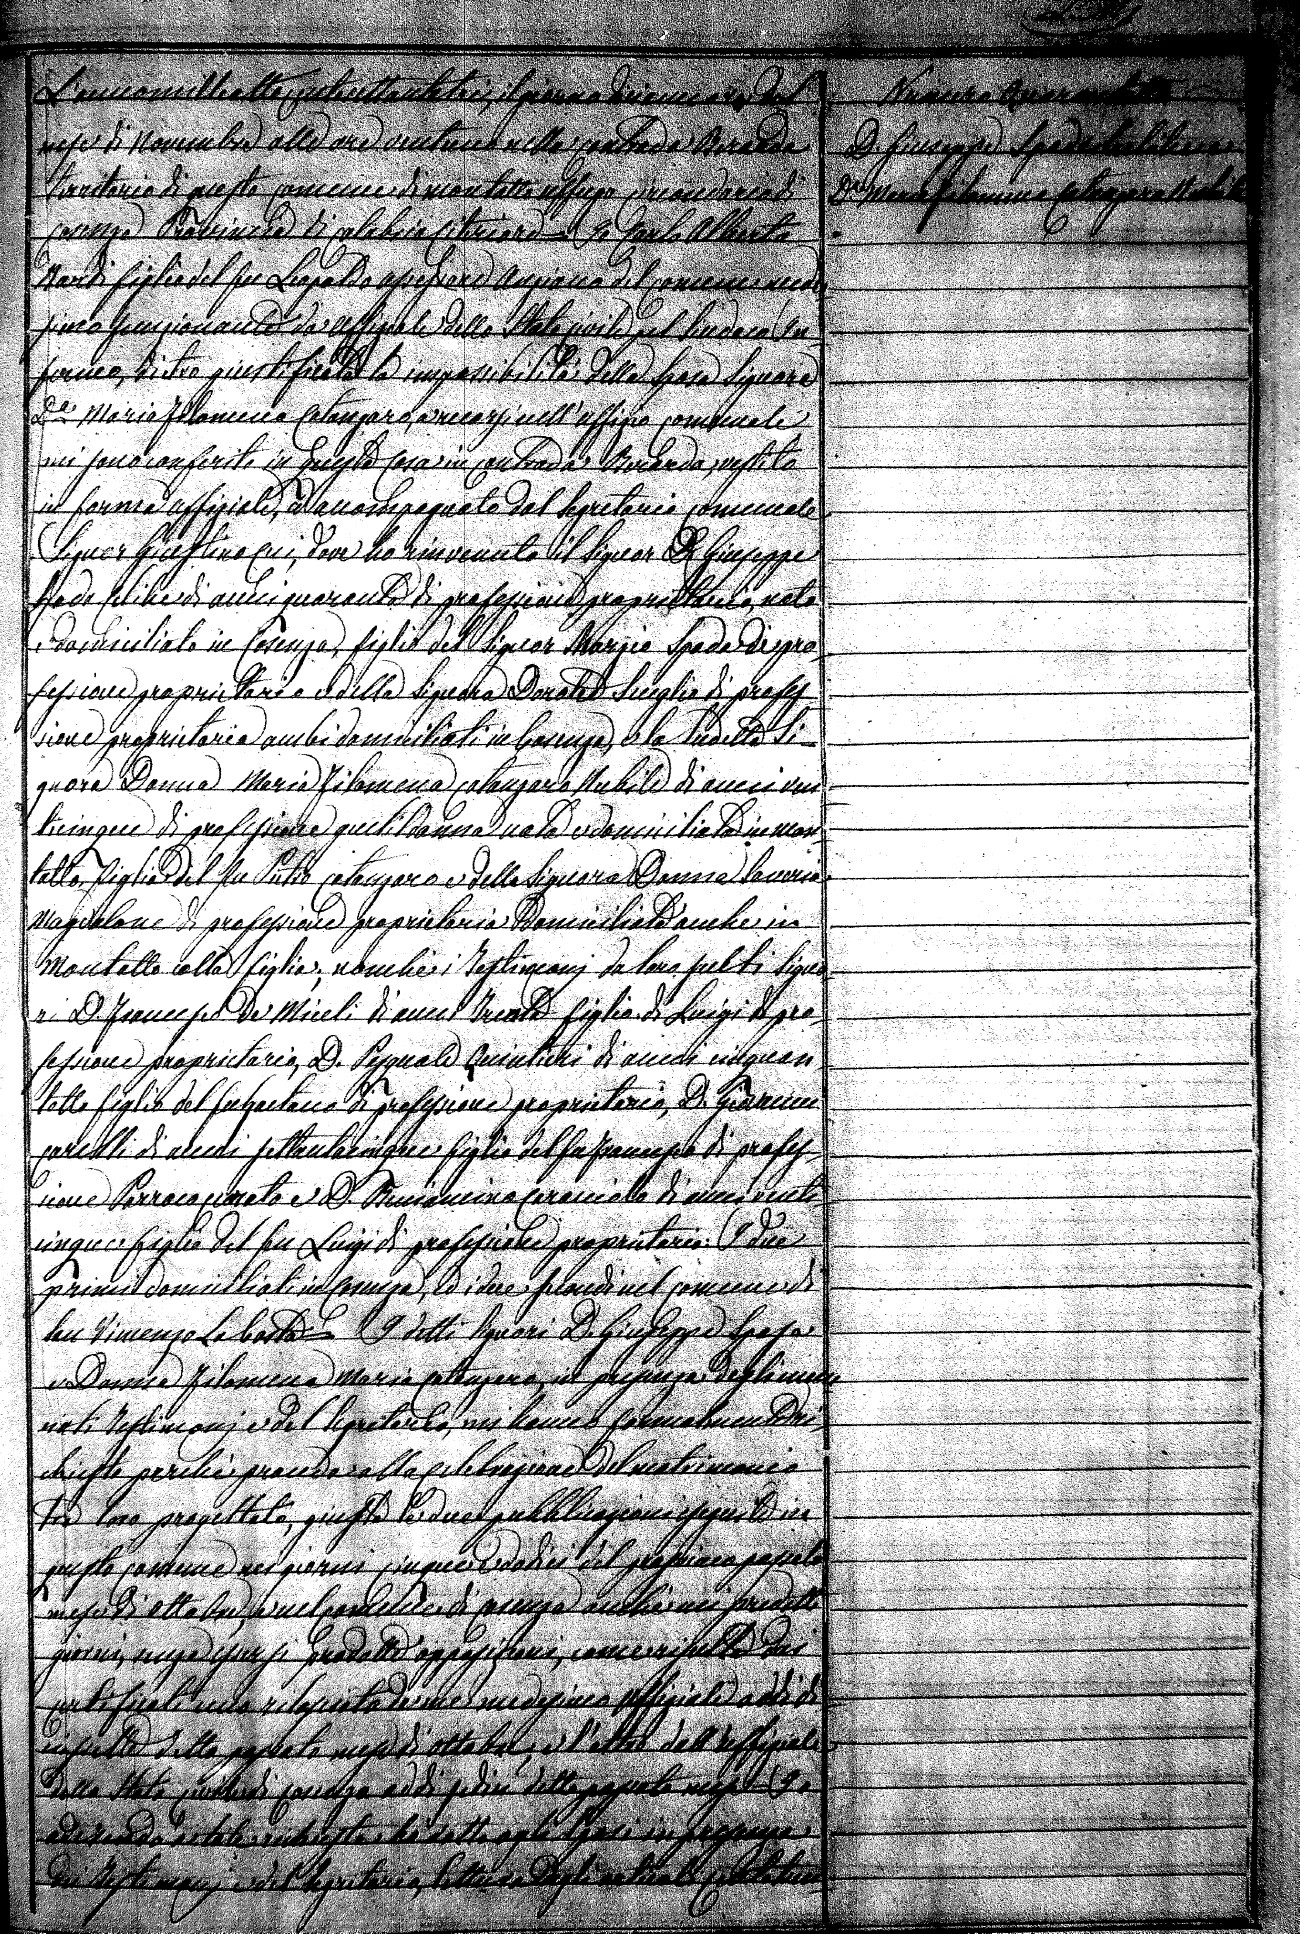 L'anno mille otto cento settantatre, il giorno diciannove del
mese di Novembre alle ore ventuna nella contrada Bucarda
territorio di questo comune di Montalto Uffugo circondario di
Cosenza Provincia di Calabria Citeriore = Io Carlo Alberto
Nardi figlio del fu Leopoldo assessore Anziano del comune mede
simo funzionante da Uffiziale dello Stato civile pel Sindaco In
fermo, dietro giustificata la impossibilità della sposa Signora
D.a Maria Filomena Catanzaro, a recarsi nell'uffizio comunale
mi sono conferito in questa casa in contrada Bucarda, vestito
in forma uffiziale, ed accompagnato dal Segretario comunale
Signor Giustino Cui, dove ho rinvenuto il Signor D. Giuseppe
Spada celibe di anni quaranta di professione proprietario, nato
e domiciliato in Cosenza, figlio del Signor Marzio Spada di pro
fessione proprietario e della Signora Donata Siniglia di profes
sione proprietaria ambi domiciliati in Cosenza, e la sudetta Si=
gnora Donna Maria Filomena Catanzaro Nubile di anni ven
ticinque di professione gentildonna nata e domiciliata in Mon
talto, figlia del fu Pietro Catanzaro e della Signora Donna Saveria
Magdalone di professione proprietaria domiciliata anche in
Montalto colla figlia; nonchè i Testimonj da loro scelti Signo
ri D. Francesco De Miceli di anni Trenta figlio di Luigi di pro
fessione proprietario, D. Pasquale Quintieri di anni cinquan
totto figlio del fu Gaetano di professione proprietario, D. Giovanni
Carelli di anni settantacinque figlio del fu Francesco di profes
sione Parroco curato e D. Beniamino Caracciolo di anni venti
cinque figlio del fu Luigi di professione proprietario. I due
primi domiciliati in Cosenza, ed i due secondi nel comune di
San Vincenzo La Costa = I detti Signori D. Giuseppe Spada
e Donna Filomena Maria Catanzaro, in presenza degli enun
nati Testimonj e del Segretario, mi hanno formalmente ri
chiesto perchè proceda alla celebrazione del matrimonio
tra loro progettato, giusta le due pubblicazioni eseguite in
questo comune nei giorni cinque e dodici del prossimo passato
mese di ottobre, e nel comune di Cosenza anche nei predetti
giorni, senza essersi prodotte opposizioni, come risulta dai
certificati uno rilasciato da me medesimo uffiziale addì di
ciasette detto passato mese di ottobre, e l'altro dall'uffiziale
dello Stato civile di Cosenza addì sedici detto passato mese. Io
aderendo a tale richiesta ho dato agli sposi in presenza
dei Testimonj e del Segretario, lettura degli articoli
Numero Quarantatre
D. Giuseppe Spada celibe con
D.a Maria Filomena Catanzaro Nubile